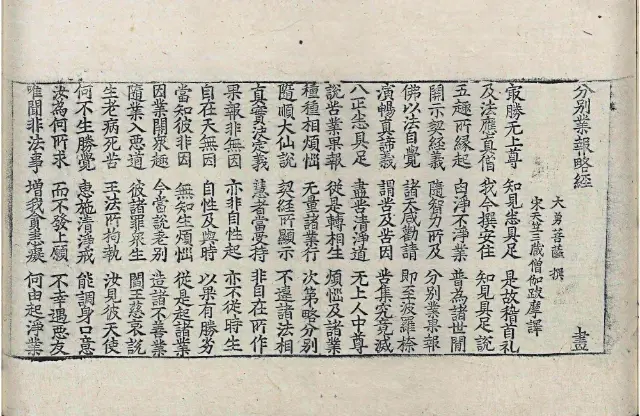 分別業報略經
大勇菩薩 撰
宋天竺三藏僧伽跋摩譯 盡
㝡勝无上尊 知見悉具足 是故稽首礼
及法應真僧 我今撰安住 知見具足說
五趣所緣起 白淨不淨業 普為諸世間
開示契經義 隨智力所及 分別業果報
佛以法自覺 諸天咸勸請 即至波羅㮈
演暢真諦義 謂苦及苦因 苦集究竟滅
八正悉具足 盡苦清淨道 无上人中尊
說苦業果報 從是轉相生 煩惱及諸業
種種相煩惱 无量諸業行 次第略分別
隨順大仙說 契經所顯示 不違諸法相
真實決定義 慧者當受持 非自在所作
果報非無因 亦非自性起 亦不從時生
自在天無因 自性及與時 以果有勝劣
當知彼非因 無知生煩惱 從是起諸業
因業開衆趣 今當說差別 造諸不善業
隨業入惡道 彼諸罪衆生 閻王慈哀說
生老病死苦 王法所拘執 汝見彼天使
何不生勝覺 惠施清淨戒 能調身口意
汝為何所求 而不發上願 不幸遇惡友
唯聞非法事 增我貪恚癡 何由起淨業